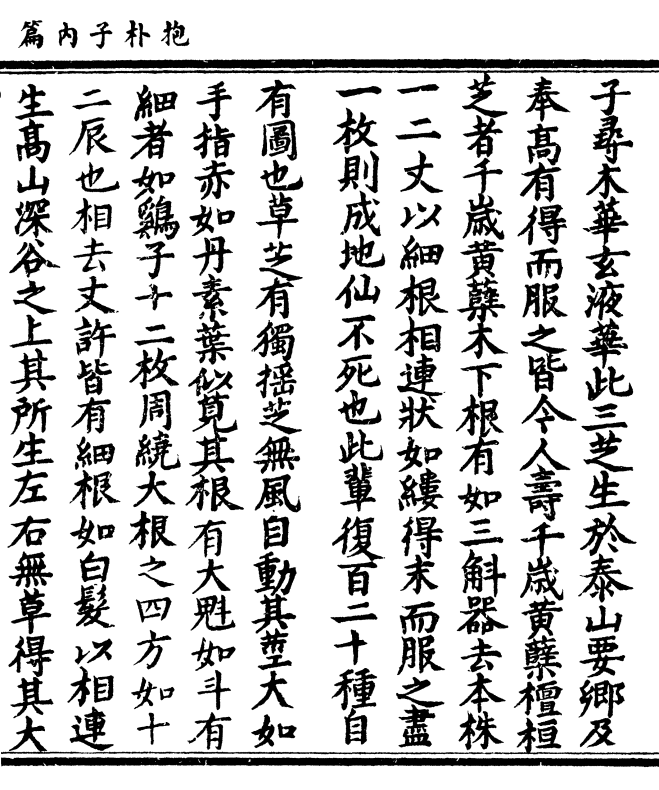 抱朴子内篇
子尋木華玄液華此三芝生於泰山要鄉及
奉高有得而服之皆令人壽千歲黄蘗檀桓
芝者千歲黄蘗木下根有如三斛器去本株
一二丈以細根相連狀如縷得末而服之盡
一枚則成地仙不死也此輩復百二十種自
有圖也草芝有獨揺芝無風自動其莖大如
手指赤如丹素葉似莧其根有大魁如斗有
細者如鷄子十二枚周繞大根之四方如十
二辰也相去丈許皆有細根如白髮以相連
生高山深谷之上其所生左右無草得其大